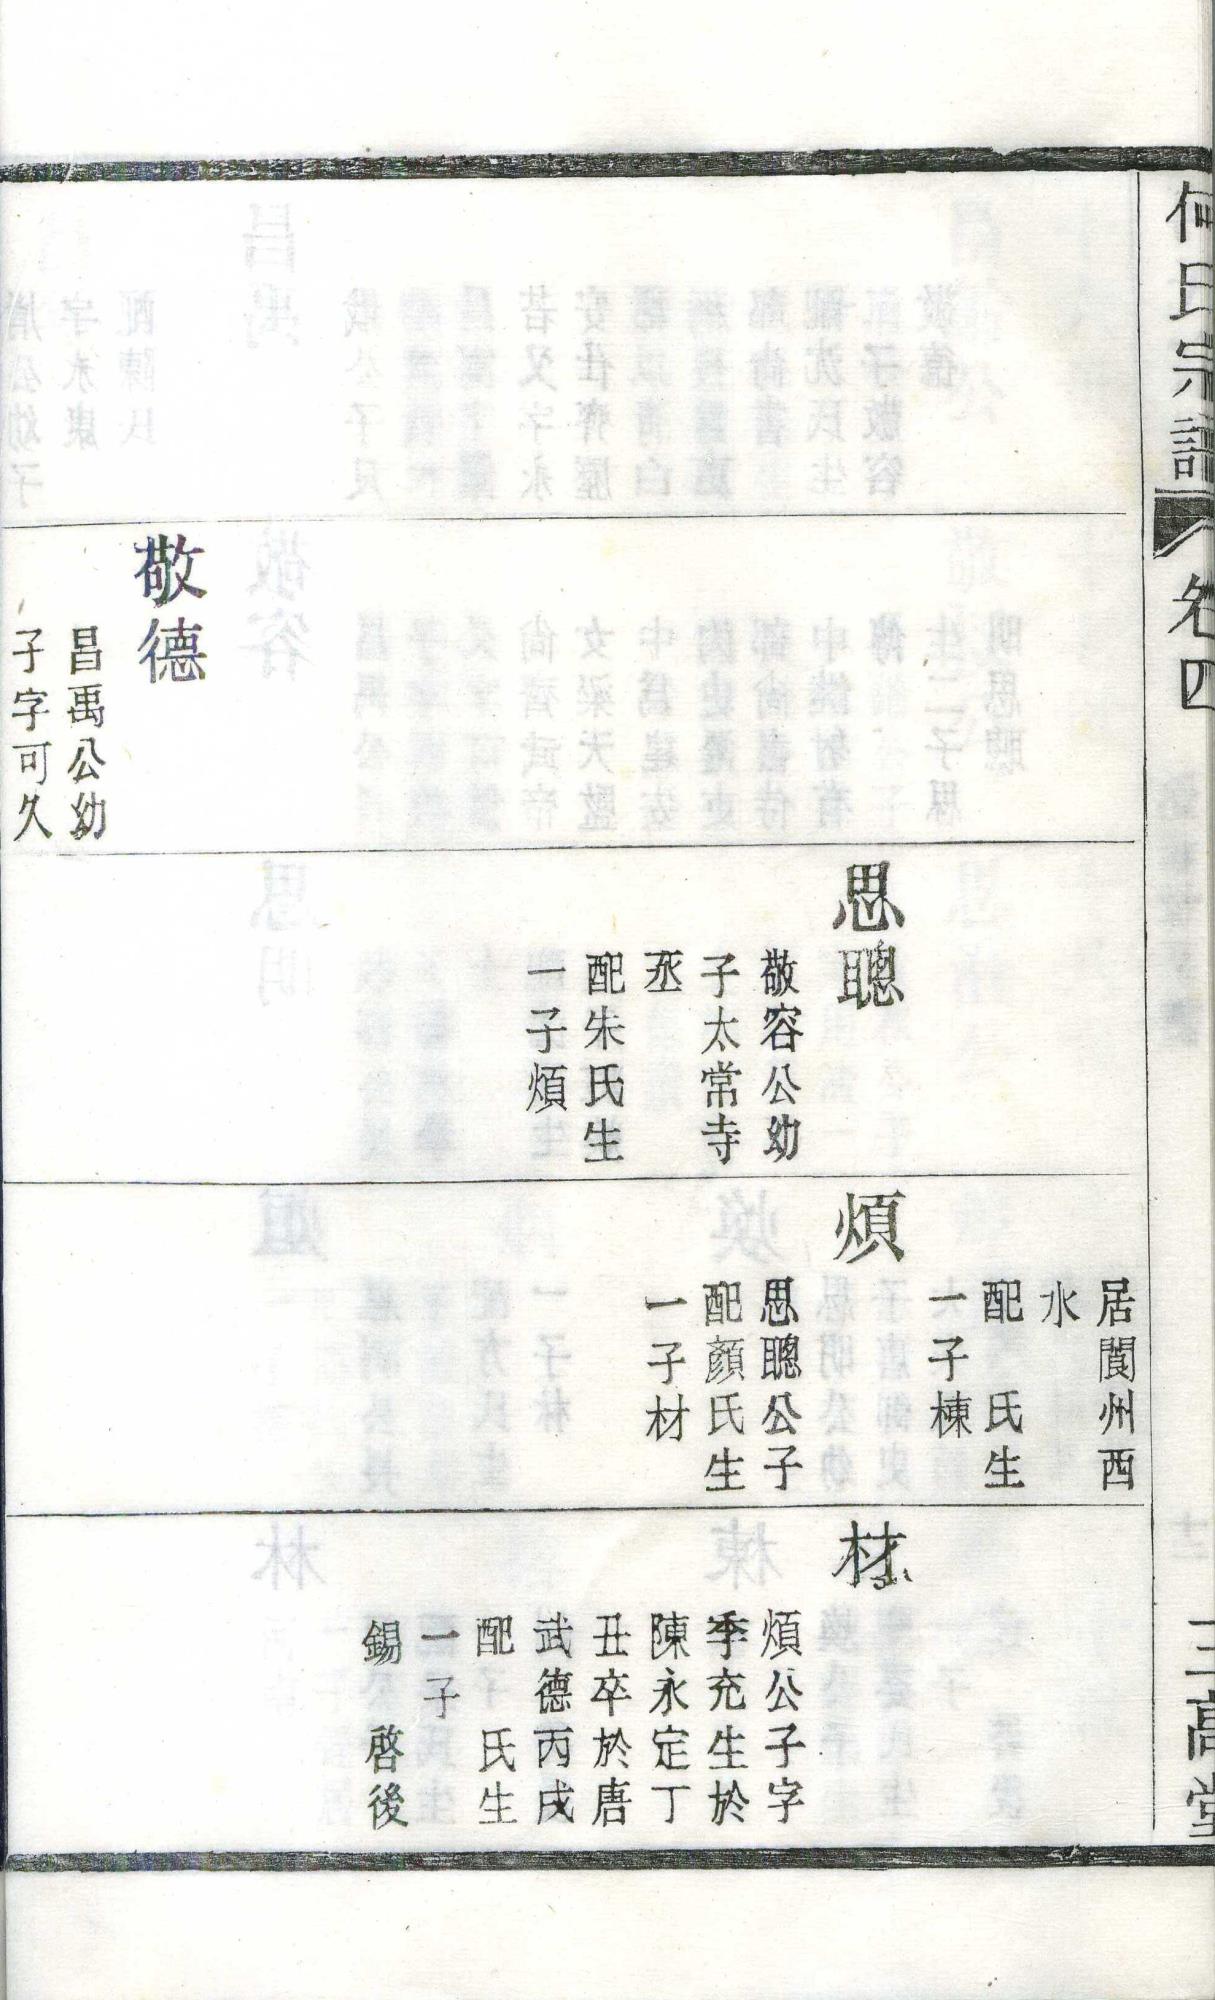 何氏宗譜
卷四
三高堂
敬德
昌禹公幼
子字可久
思聰
敬容公幼
子太常寺
丞
配朱氏生
一子煩
居閬州西
水
配 氏生
一子棟
煩
思聰公子
配顏氏生
一子材
材
煩公子字
季充生於
陳永定丁
丑卒於唐
武德丙戌
配 氏生
一子
錫 啓後